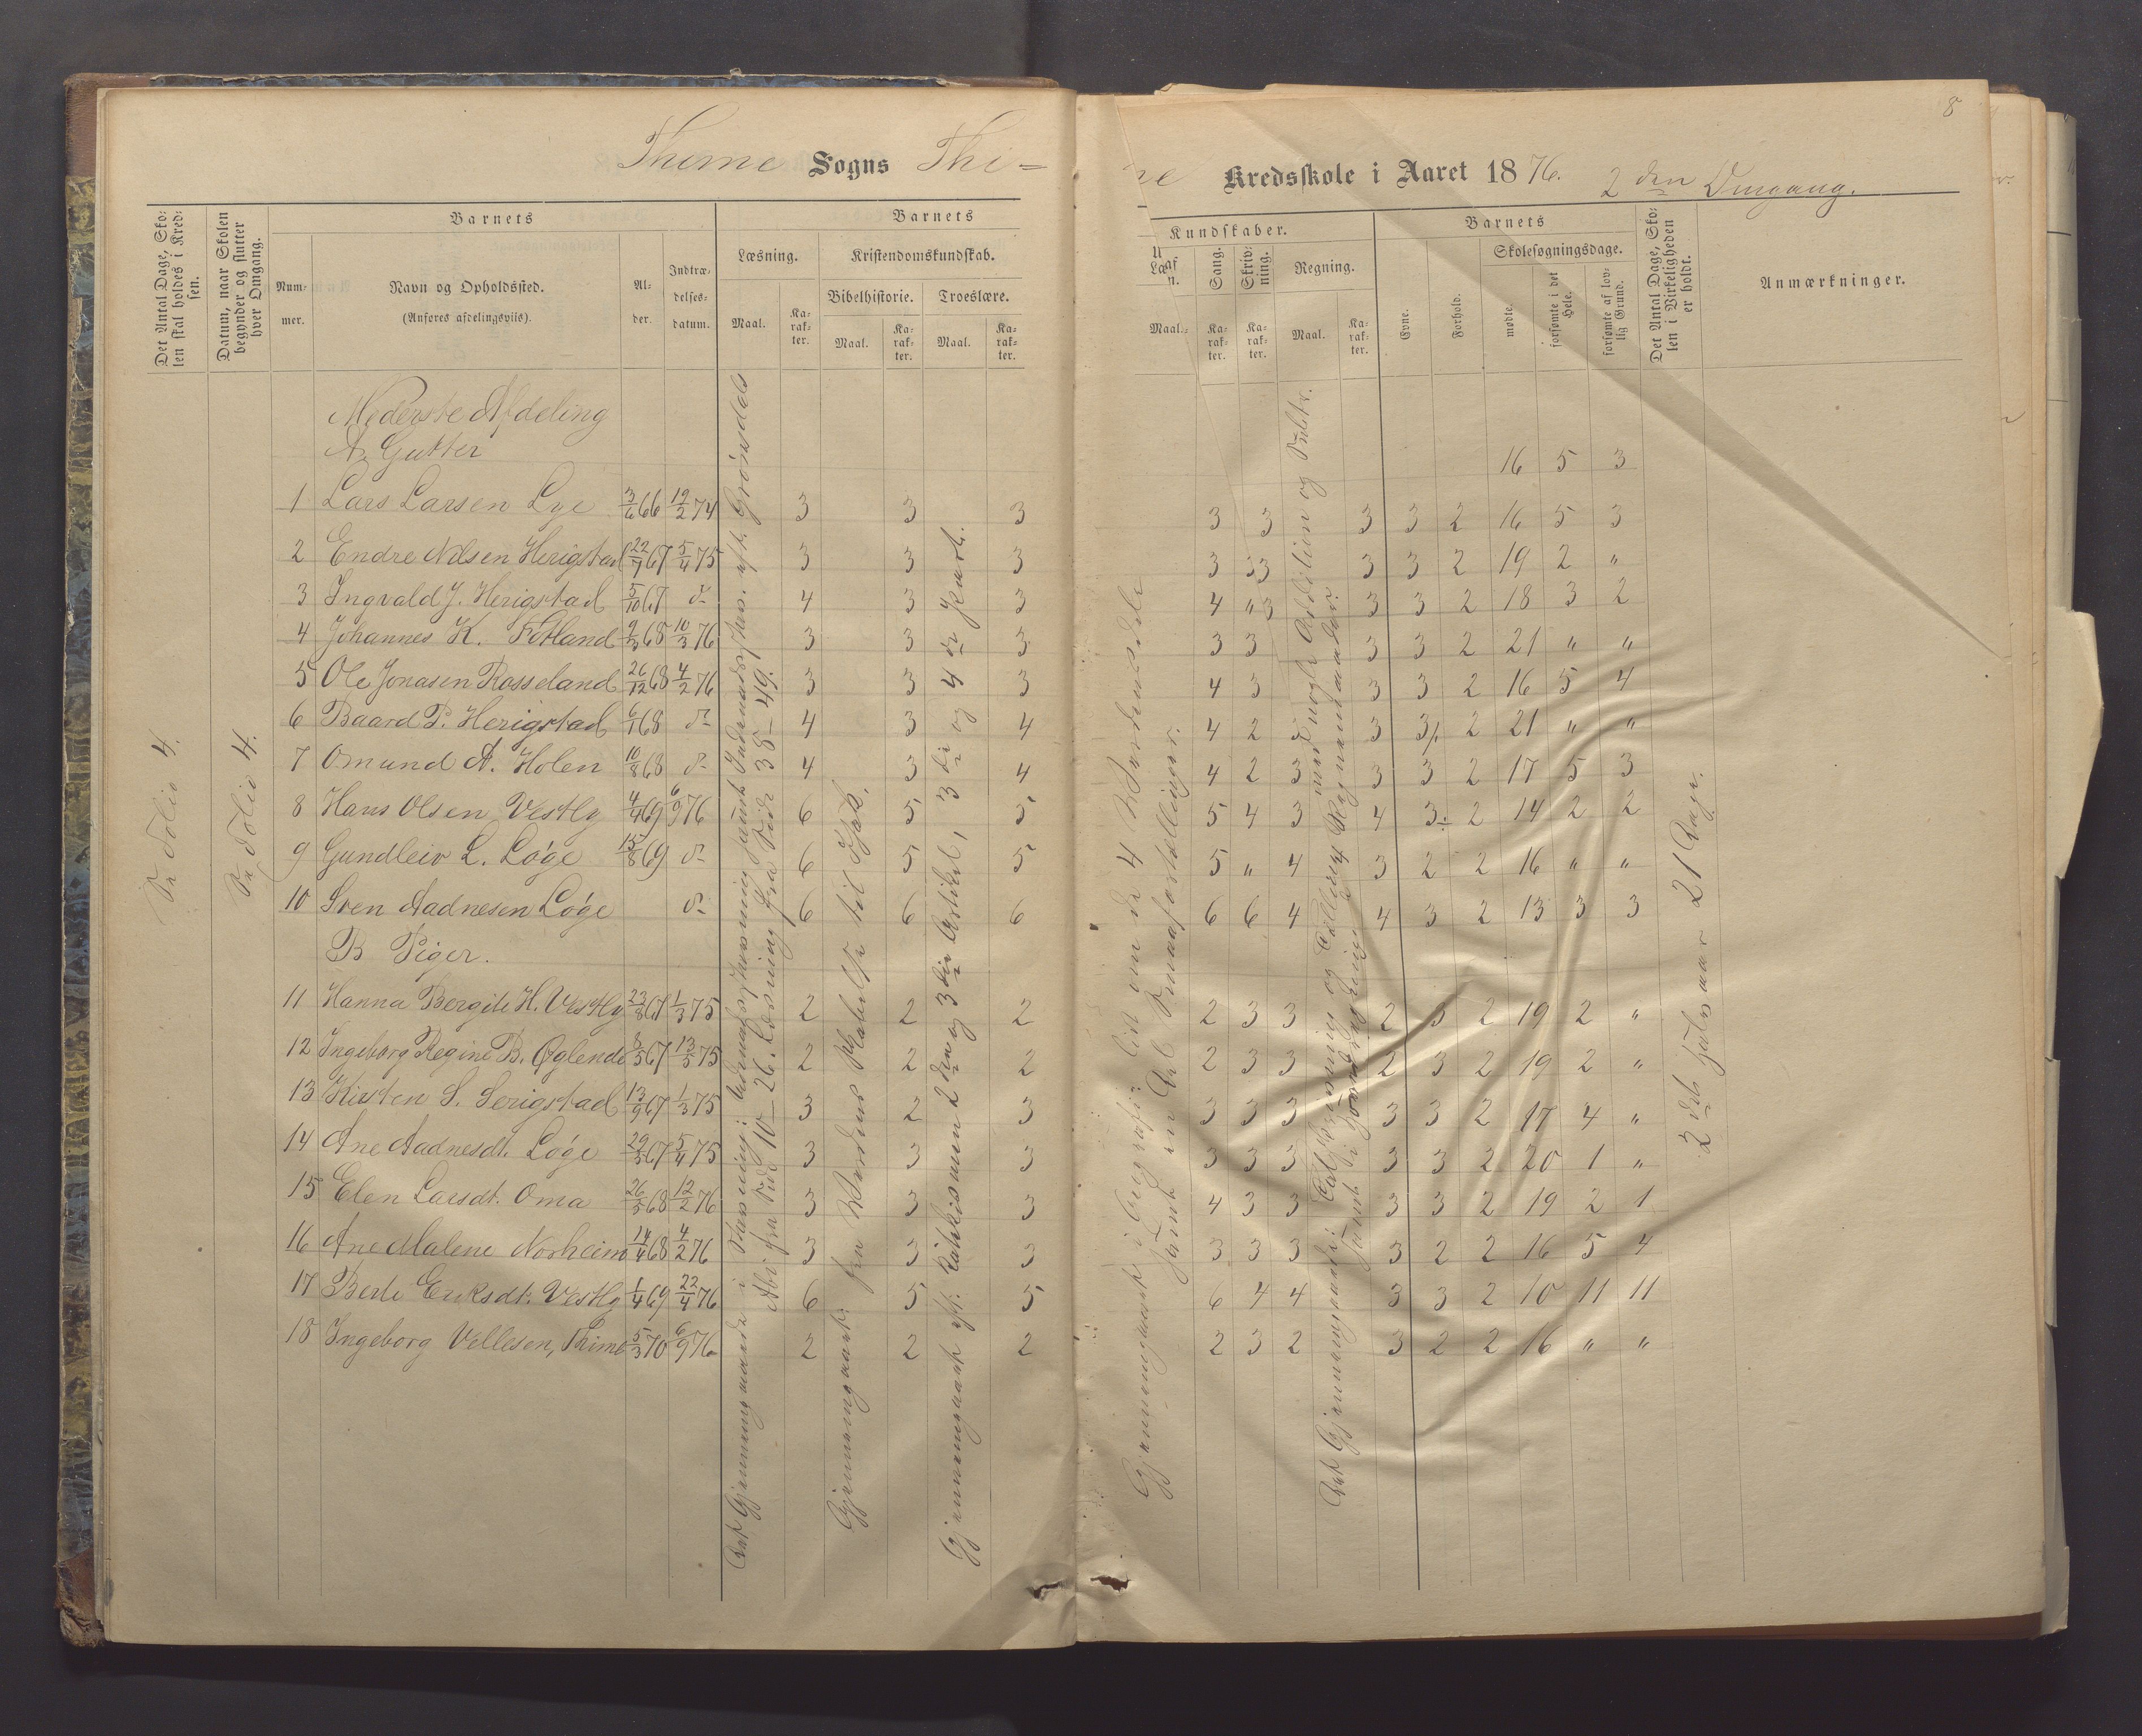 8
Thime Sogns Thi=
ne Kredsskole i Aaret 1876. 2den Omgang.
Det Antal Dage, Sko=
len skal holdes i Kred=
sen.
Datum, naar Skolen
begynder og slutter
hver Omgang.
Barnets
Num=
mer.
Navn og Opholdssted.
(Anføres afdelingsviis).
Al=
der.
Indtræ=
delses=
datum.
Barnets
Læsning.
Kristendomskundskab.
Maal.
Ka=
rak=
ter.
Bibelhistorie.
Troeslære.
Maal.
Ka=
rak=
ter.
Maal.
Ka=
rak=
ter.
Kundskaber.
Maal.
Sang.
Ka=
rak=
ter.
Skriv=
ning.
Ka=
rak=
ter.
Regning.
Maal.
Ka=
rak=
ter.
Barnets
Evne.
Forhold.
Skolesøgningsdage.
mødte.
forsømte i det
Hele.
forsømte af lov=
lig Grund.
Det Antal Dage, Sko=
len i Virkeligheden
er holdt.
Anmærkninger.
Se Folio 4.
Se Folio 4.
Nederste Afdeling
A. Gutter
16 5 3
1 Lars Larsen Lye 3/6 66 19/2 74 3 3 3 3 3 3 3 2 16 5 3
2 Endre Nilsen Herigstad 22/7 67 5/4 75 3 3 3 3 3 3 3 2 19 2 "
3 Ingvald J. Herigstad 5/10 67 d- 4 3 3 4 " 3 3 3 2 18 3 2
4 Johannes K. Fotland 9/3 68 10/3 76 3 3 3 3 3 3 3 2 21 " "
5 Ole Jonasen Rosseland 26/12 68 4/2 76 3 3 3 4 3 3 3 2 16 5 4
6 Baard P. Herigstad 6/1 68 d- 4 3 4 4 2 3 3 3/. 2 21 " "
7 Omund A. Holen 10/8 68 d- 4 3 4 4 2 3 3 3 2 17 5 3
8 Hans Olsen Vestly 4/4 69 6/9 76 6 5 5 5 4 3 4 3 2 14 2 2
9 Gundleiv L. Løge 15/8 69 d- 6 5 5 5 " 4 3 2 2 16 " "
10 Sven Aadnesen Løge d- 6 6 6 6 6 4 4 3 2 13 3 3
B Piger.
11 Hanna Bergite H. Vestly 23/8 67 1/3 75 2 2 2 2 3 3 2 3 2 19 2 "
12 Ingeborg Regine B. Øglend 8/5 67 13/5 75 2 2 2 2 3 3 2 3 2 19 2 "
13 Kirsten S. Serigstad 13/9 67 1/3 75 3 2 3 3 3 3 3 3 2 17 4 "
14 Ane Aadnesdt. Løge 29/3 67 5/4 75 3 3 3 3 3 3 3 3 2 20 1 "
15 Elen Larsdt. Oma 26/5 68 12/2 76 3 3 3 4 3 3 3 3 2 19 2 1
16 Ane Malene Norheim 14/4 68 4/2 76 3 3 3 3 3 3 3 2 2 16 5 4
17 Berte Eriksdt. Vestly 1/4 69 22/4 76 6 5 5 6 4 4 3 3 2 10 11 11
18 Ingeborg Vellesen, Thime 5/3 70 6/9 76 2 2 2 2 3 2 3 2 2 16 " "
Det Gjennemgaaede i
Abc fra Side 10-26. Læsning fra Side 38-49.
Gjennemgaaet: fra Verdens Skabelse til Jak.
Gjennemgaaet af: Katekismen 2den og 3die Artikel, 3die og 4de
Gjennemgaaet i Geografi: lidt om de 4 Verdensdele
samt en Del Smaafortællinger.
Det Gjennemgaaede: Talskrivning og Tælling med nogle Addition og Subtr.
2det Halvaar 21 Dage.